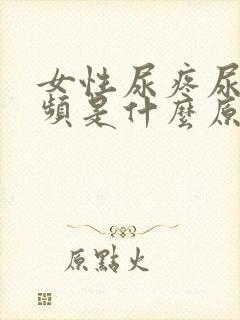 女性尿疼尿
頻是什麼原
原點火